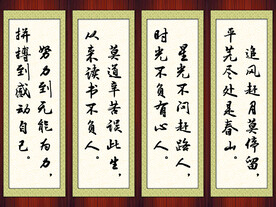 追风赶月莫停留，
平芜尽处是春山。
星光不问赶路人，
时光不负有心人。
莫道辛苦误此生，
从来读书不负人。
努力到无能为力，
拼搏到感动自己。